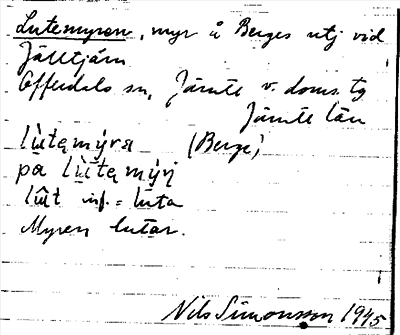 Lutemyren, myr å Berges utj vid
Jälltjärn
Offerdals sn, Jämte v. doms. tg
Jämte län
lùtęmýra (Berge)
pa lùtęmýrı̨
lût inf. = luta
Myren lutar.
Nils Simonsson 1945